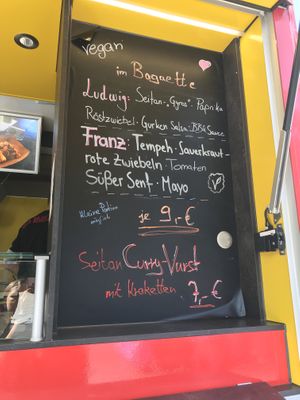 vegan
im Baguette
Ludwig: Seitan-„Gyros“ · Paprika
Röstzwiebel · Gurken Salsa · BBQ Sauce
Franz: Tempeh · Sauerkraut ·
rote Zwiebeln · Tomaten
Süßer Senf · Mayo
V
kleine Portion
möglich
je 9,- €
Seitan Curry-Vurst
mit Kroketten 7,- €